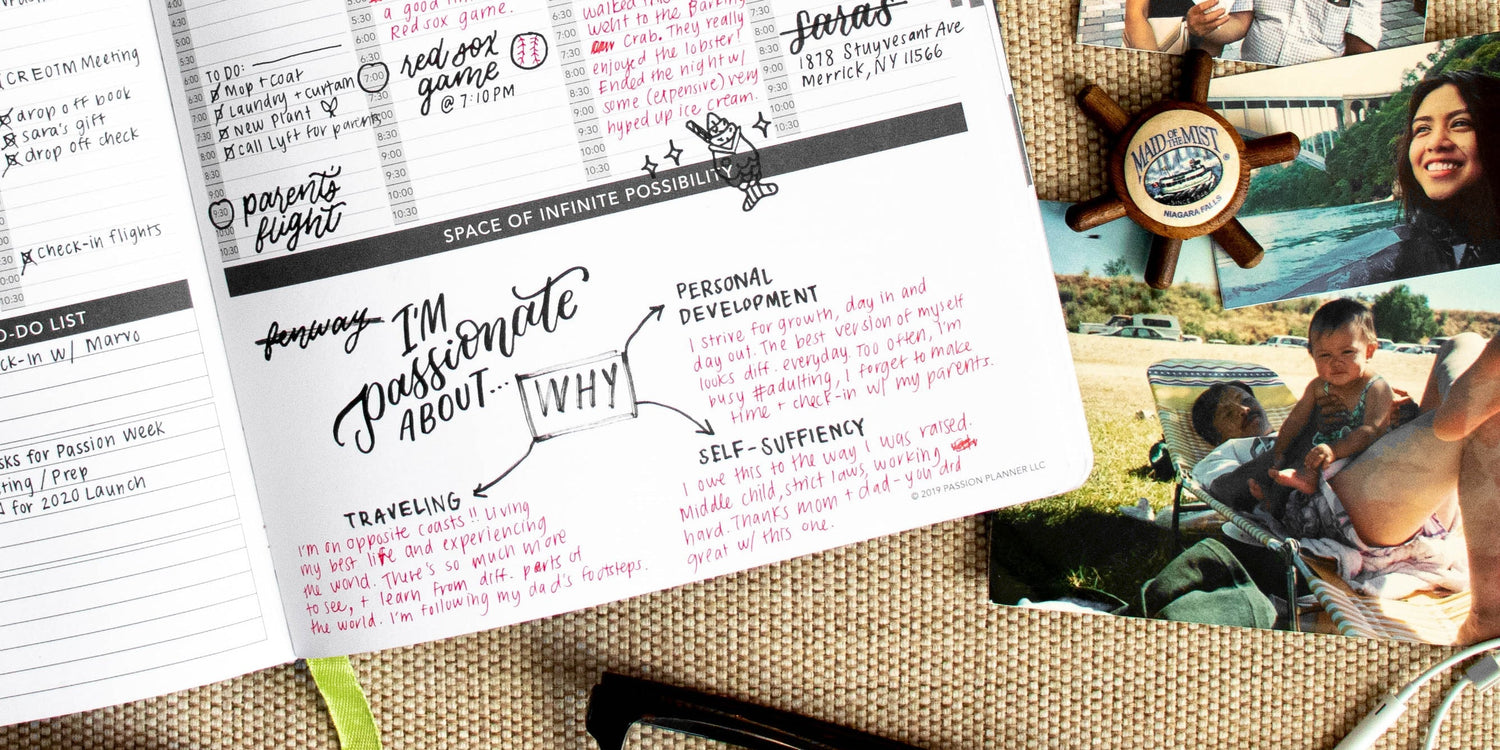 CREOTM Meeting
drop off book
sara's gift
drop off check
Check-in flights
10:30
O-DO LIST
ck-in w/ Marvo
sks for Passion Week
ting / Prep
for 2020 Launch
4:30
5:00
TO DO:
Mop + coat
Laundry + curtain
New Plant
call Lyft for parents
6:30
7:00
7:30
8:00
9:30
10:30
parent's
flight
a good
Red sox game.
6:30
7:00
7:30
red sox
game
@ 7:10PM
8:30
9:00
9:30
10:00
10:30
walked
went to the Barking
Crab. They really
enjoyed the lobster!
Ended the night w/
some (expensive) very
hyped up ice cream.
6:30
7:00
7:30
8:00
8:30
9:00
9:30
10:00
10:30
saras
1878 Stuyvesant Ave
Merrick, NY 11566
7:00
7:30
8:00
8:30
9:00
9:30
10:00
10:30
SPACE OF INFINITE POSSIBILITY
fenway
I'M
passionate
ABOUT...
WHY
PERSONAL
DEVELOPMENT
I strive for growth, day in and
day out. The best version of myself
looks diff. everyday. Too often, I'm
busy #adulting, I forget to make
time + check-in w/ my parents.
SELF-SUFFIENCY
I owe this to the way I was raised.
Middle child, strict laws, working
hard. Thanks mom + dad - you did
great w/ this one.
TRAVELING
I'm on opposite coasts!! Living
my best life and experiencing
the world. There's so much more
to see, + learn from diff. parts of
the world. I'm following my dad's footsteps.
© 2019 PASSION PLANNER LLC
MAID OF THE MIST
®
SINCE
NIAGARA FALLS